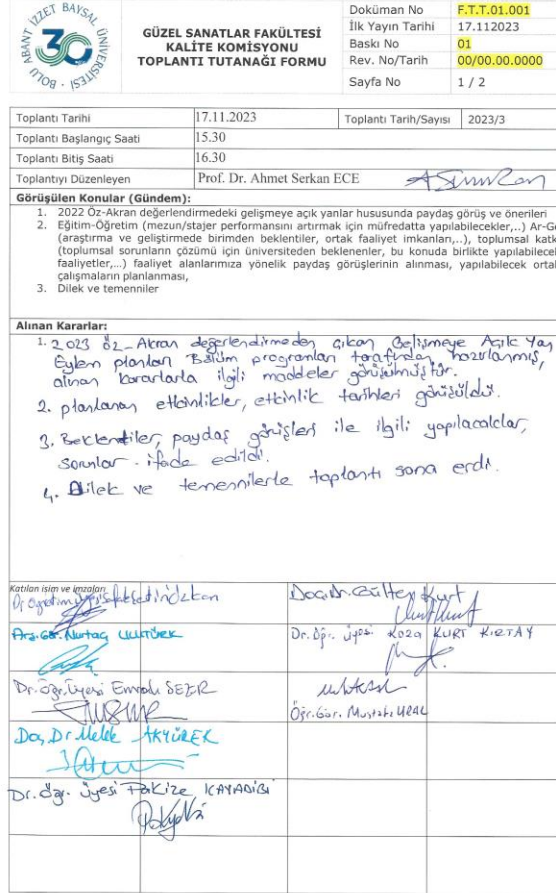 ABANT İZZET BAYSAL ÜNİVERSİTESİ
BOLU - 1992
30
GÜZEL SANATLAR FAKÜLTESİ
KALİTE KOMİSYONU
TOPLANTI TUTANAĞI FORMU
Doküman No F.T.T.01.001
İlk Yayın Tarihi 17.112023
Baskı No 01
Rev. No/Tarih 00/00.00.0000
Sayfa No 1 / 2
Toplantı Tarihi 17.11.2023 Toplantı Tarih/Sayısı 2023/3
Toplantı Başlangıç Saati 15.30
Toplantı Bitiş Saati 16.30
Toplantıyı Düzenleyen Prof. Dr. Ahmet Serkan ECE
Görüşülen Konular (Gündem):
1. 2022 Öz-Akran değerlendirmedeki gelişmeye açık yanlar hususunda paydaş görüş ve önerileri
2. Eğitim-Öğretim (mezun/stajer performansını artırmak için müfredatta yapılabilecekler,..) Ar-Ge
(araştırma ve geliştirmede birimden beklentiler, ortak faaliyet imkanları,..), toplumsal katk
(toplumsal sorunların çözümü için üniversiteden beklenenler, bu konuda birlikte yapılabilecek
faaliyetler,…) faaliyet alanlarımıza yönelik paydaş görüşlerinin alınması, yapılabilecek ortal
çalışmaların planlanması,
3. Dilek ve temenniler
Alınan Kararlar:
1. 2023 öz-Akran değerlendirmeden çıkan Gelişmeye Açık Yan
Eylem planları Bölüm programları tarafından hazırlanmış,
alınan kararlarla ilgili maddeler görüşülmüştür.
2. planlanan etkinlikler, etkinlik tarihleri görüşüldü.
3. Beklentiler, paydaş görüşleri ile ilgili yapılacaklar,
sorunlar ifade edildi.
4. Dilek ve temennilerle toplantı sona erdi.
Katılan isim ve imzaları
Dr. Öğretim Üyesi
Doç. Dr. Gülten Kurt
Arş. Gör. Nurtaç
Dr. Öğr. Üyesi Koza KURT KIRTAY
Dr. Öğr. Üyesi Emrah SEZER
Öğr. Gör. Mustafa URAL
Doç. Dr Melek AKYÜREK
Dr. Öğr. Üyesi Pakize KAYADİBİ